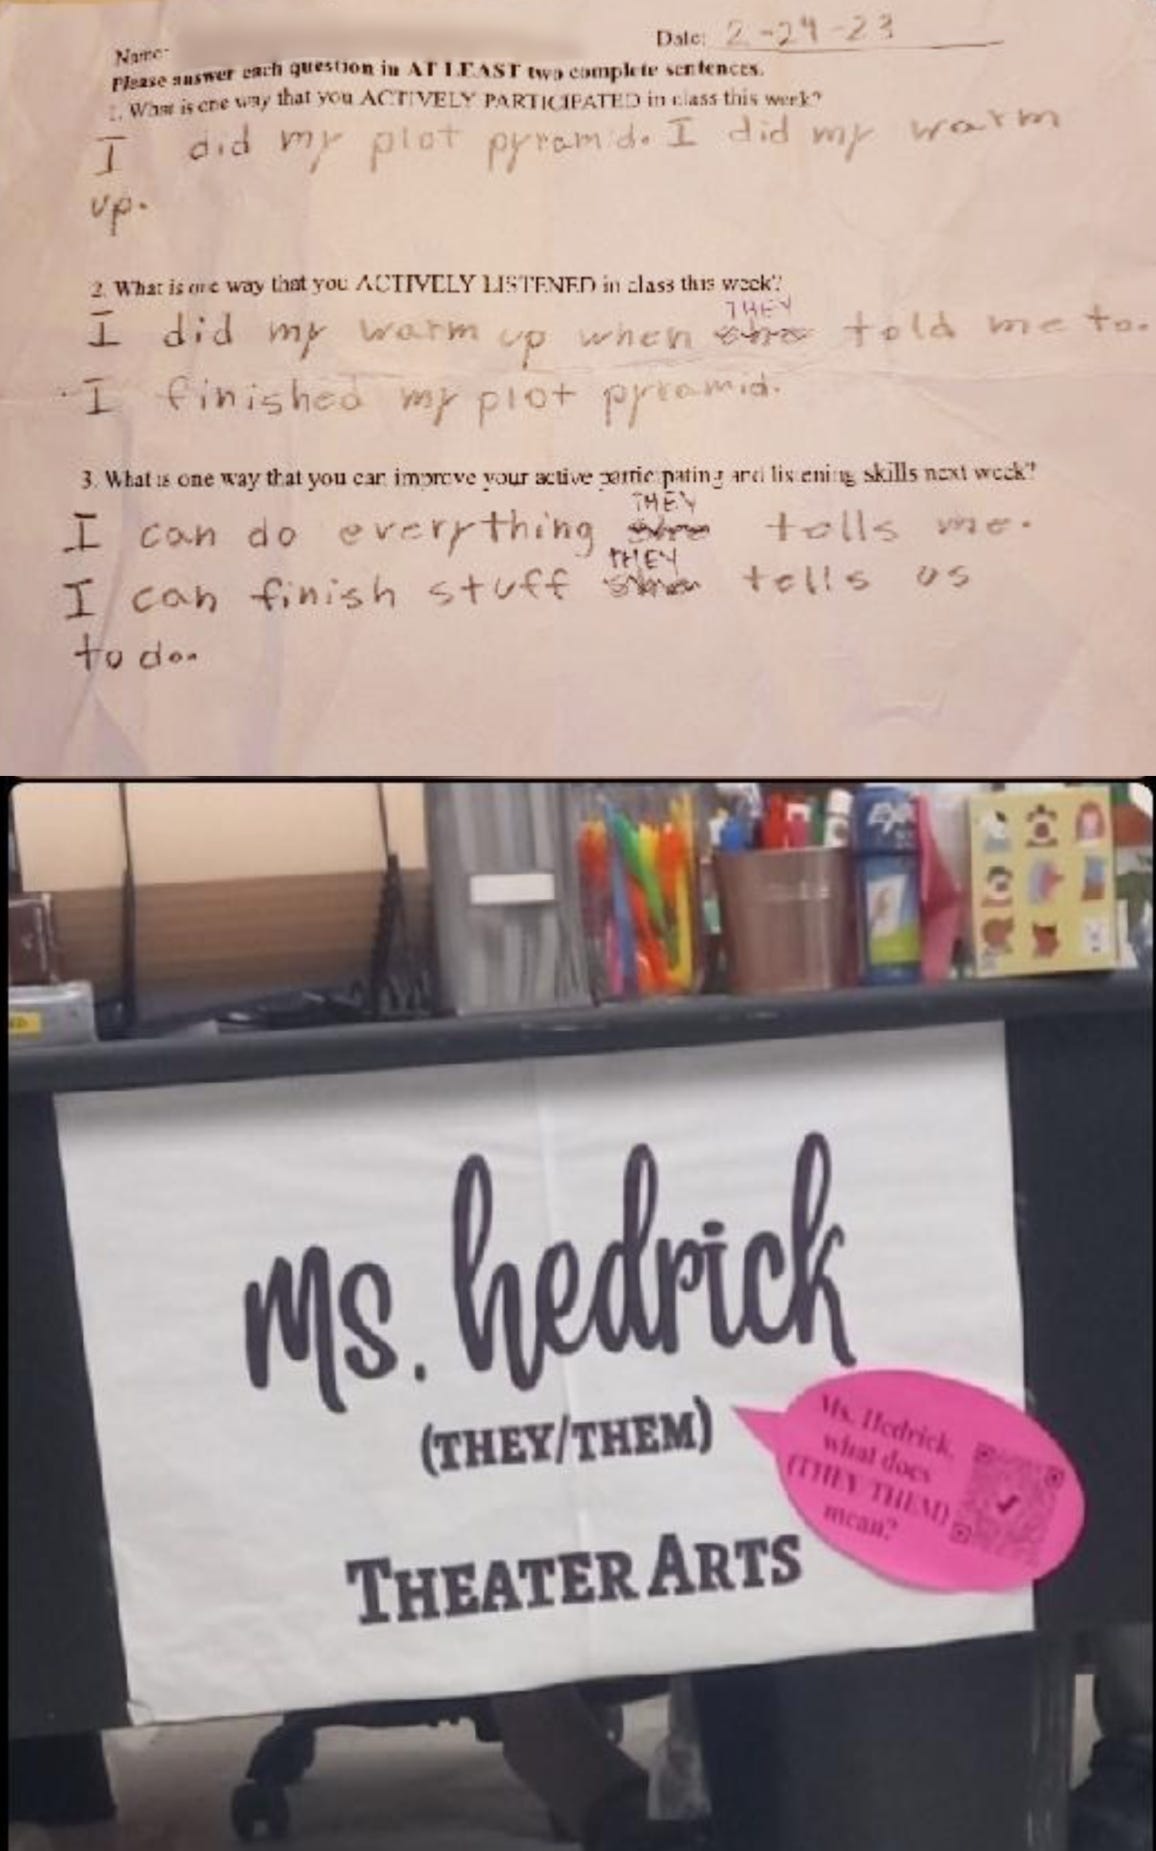 Name:
Date: 2-24-23
Please answer each question in AT LEAST two complete sentences.
1. What is one way that you ACTIVELY PARTICIPATED in class this week?
I did my plot pyramid. I did my warm
up.
2. What is one way that you ACTIVELY LISTENED in class this week?
THEY
I did my warm up when she told me to.
I finished my plot pyramid.
3. What is one way that you can improve your active participating and listening skills next week?
THEY
I can do everything she tells me.
THEY
I can finish stuff she tells us
to do.
EXPO
ms. hedrick
(THEY/THEM)
THEATER ARTS
Ms. Hedrick,
what does
(THEY/THEM)
mean?